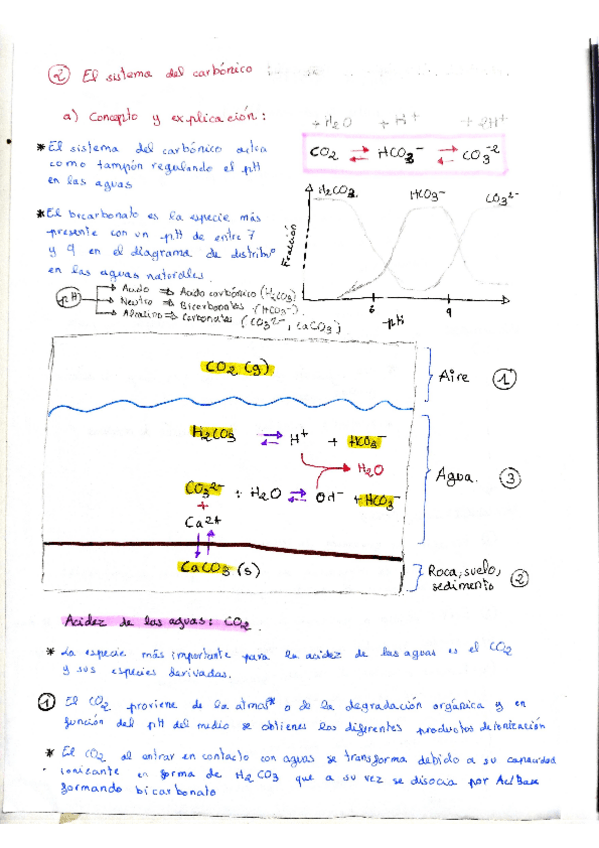 ② El sistema del carbónico
a) Concepto y explicación:
+ H2O + H+ + 2H+
CO2 ⇄ HCO3⁻ ⇄ CO3⁻²
* El sistema del carbónico actúa
como tampón regulando el pH
en las aguas
* El bicarbonato es la especie más
presente con un pH de entre 7
y 9 en el diagrama de distribuº
en las aguas naturales.
H2CO3 HCO3⁻ CO3²⁻
Fracción
6 9
pH
pH
Ácido ⇒ Ácido carbónico (H2CO3)
Neutro ⇒ Bicarbonatos (HCO3⁻).
Alcalino ⇒ Carbonatos (CO3²⁻, CaCO3)
CO2 (g)
Aire ①
H2CO3 ⇄ H+ + HCO3⁻
H2O
Agua. ③
CO3²⁻ + H2O ⇄ OH⁻ + HCO3⁻
+
Ca²+
CaCO3 (s)
Roca, suelo,
sedimento ②
Acidez de las aguas: CO2.
* La especie más importante para la acidez de las aguas es el CO2
y sus especies derivadas.
① El CO2 proviene de la atmosª o de la degradación orgánica y en
función del pH del medio se obtienes los diferentes productos de ionización
* El CO2 al entrar en contacto con aguas se transforma debido a su capacidad
ionizante en forma de H2CO3 que a su vez se disocia por Ac/Base
formando bicarbonato